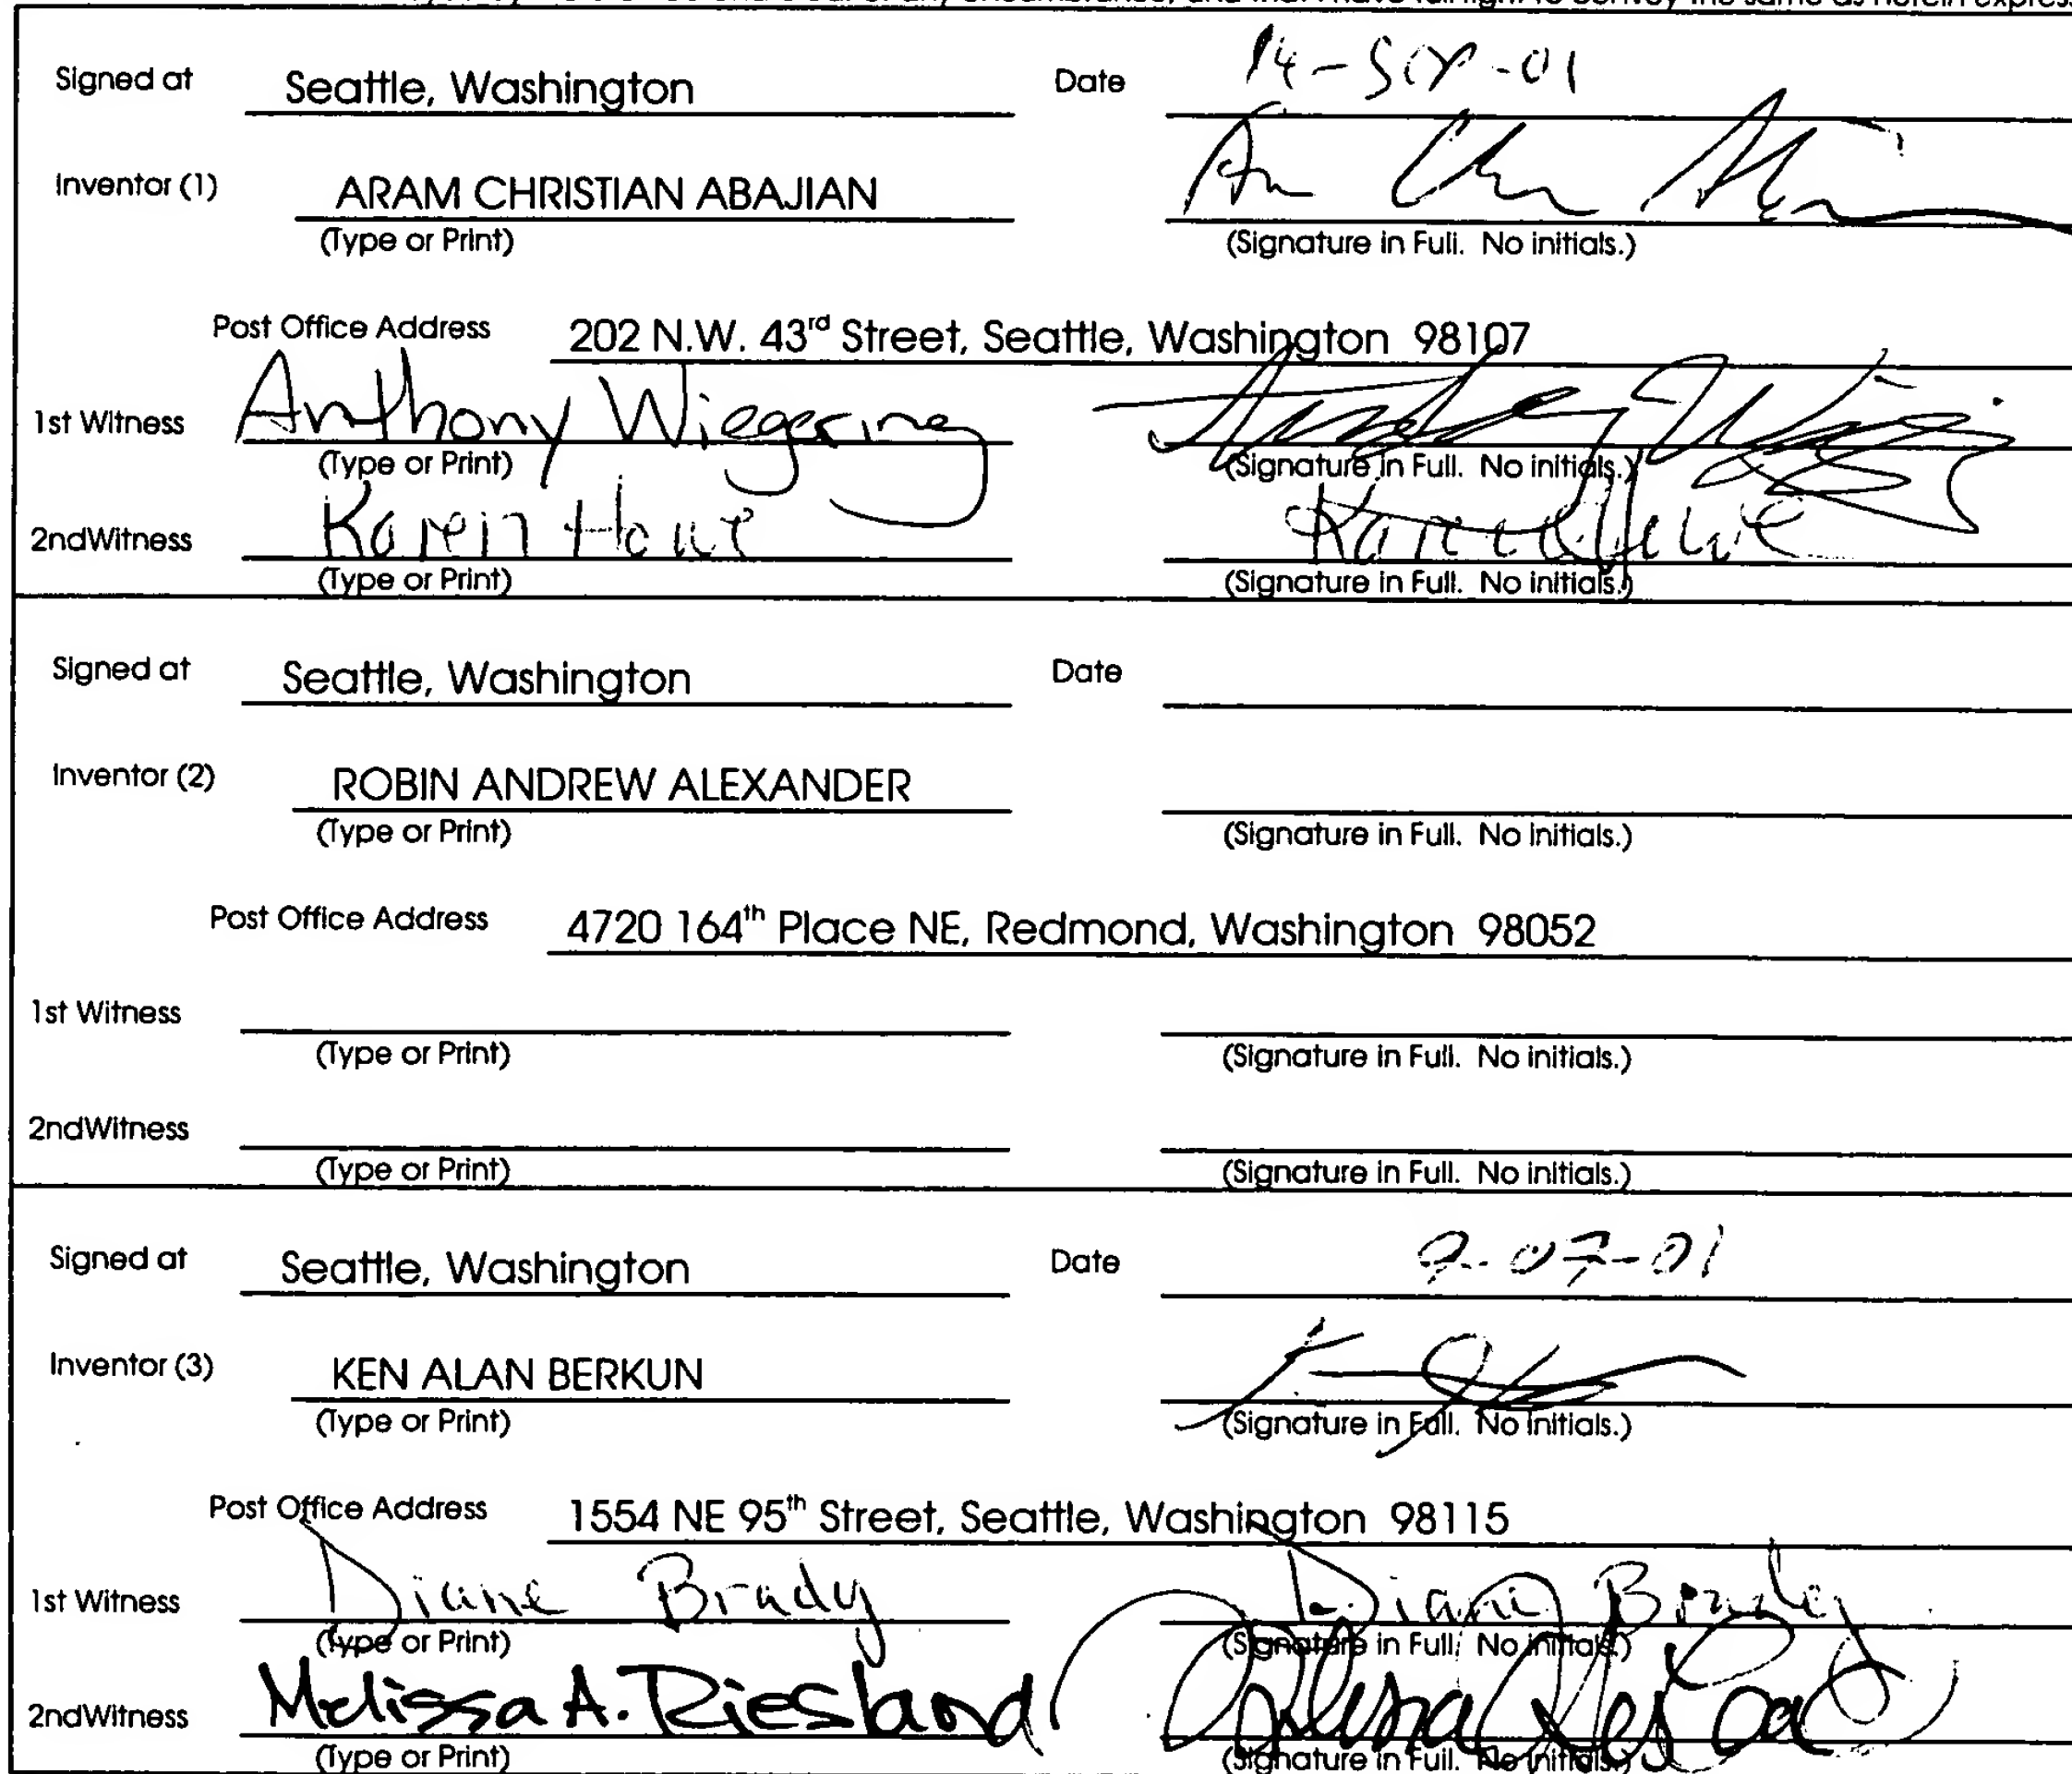 Signed at Seattle, Washington Date 14-Sep-01
Inventor (1) ARAM CHRISTIAN ABAJIAN
(Type or Print) (Signature in Full. No initials.)
Post Office Address 202 N.W. 43rd Street, Seattle, Washington 98107
1st Witness Anthony Wiegering
(Type or Print) (Signature in Full. No initials.)
2ndWitness Karen Howe Karen Howe
(Type or Print) (Signature in Full. No initials.)
Signed at Seattle, Washington Date
Inventor (2) ROBIN ANDREW ALEXANDER
(Type or Print) (Signature in Full. No initials.)
Post Office Address 4720 164th Place NE, Redmond, Washington 98052
1st Witness
(Type or Print) (Signature in Full. No initials.)
2ndWitness
(Type or Print) (Signature in Full. No initials.)
Signed at Seattle, Washington Date 9-07-01
Inventor (3) KEN ALAN BERKUN
(Type or Print) (Signature in Full. No initials.)
Post Office Address 1554 NE 95th Street, Seattle, Washington 98115
1st Witness Diane Brady Diane Brady
(Type or Print) (Signature in Full. No initials.)
2ndWitness Melissa A. Riesland
(Type or Print) (Signature in Full. No initials.)